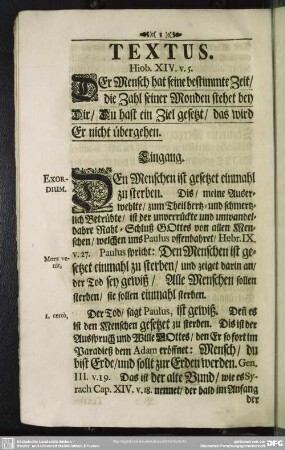 TEXTUS.
Hiob. XIV. v. 5.
DEr Mensch hat seine bestimmte Zeit/
die Zahl seiner Monden stehet bey
Dir/ Du hast ein Ziel gesetzt/ das wird
Er nicht übergehen.
Eingang.
EXOR-
DIUM.
DEn Menschen ist gesetzet einmahl
zu sterben. Dis/ meine Auser-
wehlte/ zum Theil hertz- und schmertz-
lich Betrübte/ ist der unverrückte und unwandel-
bahre Raht-Schluß GOttes von allen Men-
schen/ welchen uns Paulus offenbahret/ Hebr. IX.
v. 27. Paulus spricht: Den Menschen ist ge-
Mors ve-
nit,
setzet einmahl zu sterben/ und zeiget darin an/
der Tod sey gewiß/ Alle Menschen sollen
sterben/ sie sollen einmahl sterben.
1. certò,
Der Tod/ sagt Paulus, ist gewiß. Deñ es
ist den Menschen gesetzet zu sterben. Dis ist der
Ausspruch und Wille GOttes/ den Er so fort im
Paradieß dem Adam eröffnet: Mensch/ du
bist Erde/ und sollt zur Erden werden. Gen.
III. v. 19. Das ist der alte Bund/ wie es Sy-
rach Cap. XIV. v. 18. nennet/ der bald im Anfang
der